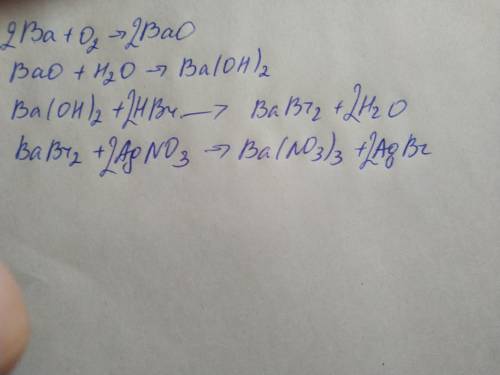 2Ba + O₂ → 2BaO
BaO + H₂O → Ba(OH)₂
Ba(OH)₂ + 2HBr → BaBr₂ + 2H₂O
BaBr₂ + 2AgNO₃ → Ba(NO₃)₃ + 2AgBr